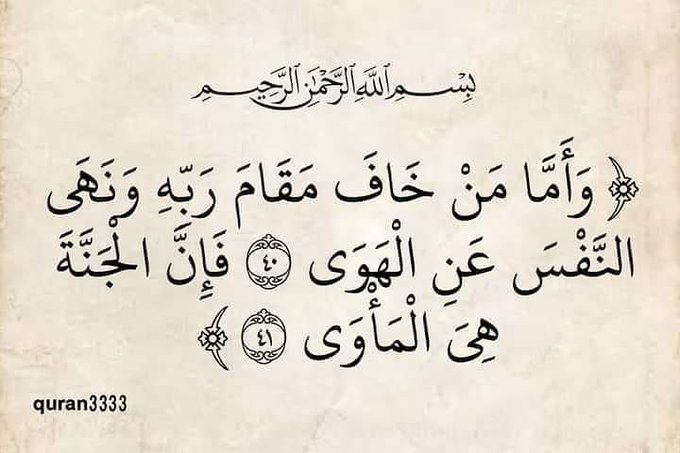 بِسْمِ ٱللَّهِ ٱلرَّحْمَٰنِ ٱلرَّحِيمِ
﴿ وَأَمَّا مَنْ خَافَ مَقَامَ رَبِّهِ وَنَهَى
النَّفْسَ عَنِ الْهَوَى ٤٠ فَإِنَّ الْجَنَّةَ
هِيَ الْمَأْوَى ٤١ ﴾
quran3333